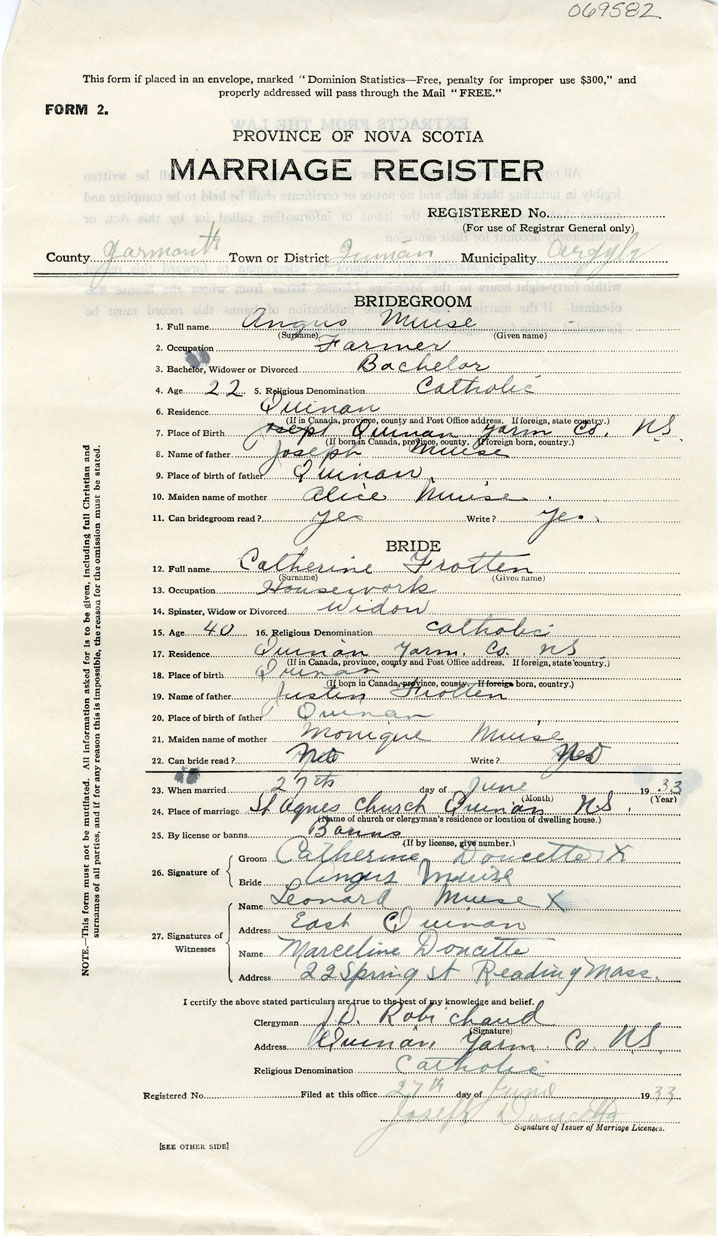 069582
This form if placed in an envelope, marked "Dominion Statistics—Free, penalty for improper use $300," and
properly addressed will pass through the Mail "FREE."
FORM 2.
PROVINCE OF NOVA SCOTIA
MARRIAGE REGISTER
REGISTERED No.
(For use of Registrar General only)
County Yarmouth Town or District Quinan Municipality Argyle
BRIDEGROOM
1. Full name Angus Muise
(Surname) (Given name)
2. Occupation Farmer
3. Bachelor, Widower or Divorced Bachelor
4. Age 22 5. Religious Denomination Catholic
6. Residence Quinan
(If in Canada, province, county and Post Office address. If foreign, state country.)
7. Place of Birth Quinan Yarm Co. NS.
(If born in Canada, province, county. If foreign born, country.)
8. Name of father Joseph Muise
9. Place of birth of father Quinan
10. Maiden name of mother Alice Muise.
11. Can bridegroom read? yes Write? yes.
BRIDE
12. Full name Catherine Frotten
(Surname) (Given name)
13. Occupation Housework
14. Spinster, Widow or Divorced Widow
15. Age 40 16. Religious Denomination Catholic
17. Residence Quinan Yarm. Co. NS
(If in Canada, province, county and Post Office address. If foreign, state country.)
18. Place of birth Quinan
(If born in Canada, province, county. If foreign born, country.)
19. Name of father Justin Frotten
20. Place of birth of father Quinan
21. Maiden name of mother Monique Muise
22. Can bride read? Write?
23. When married 27th day of June 1933
(Month) (Year)
24. Place of marriage St Agnes Church Quinan NS.
(Name of church or clergyman's residence or location of dwelling house.)
25. By license or banns Banns
(If by license, give number.)
26. Signature of
Groom Catherine Doucette X
Bride Angus Muise
27. Signatures of Witnesses
Name Leonard Muise X
Address East Quinan
Name Marceline Doucette
Address 22 Spring St Reading Mass.
I certify the above stated particulars are true to the best of my knowledge and belief.
Clergyman J.D. Robichaud
(Signature)
Address Quinan Yarm. Co. NS
Religious Denomination Catholic
Registered No. Filed at this office 27th day of June 1933
Joseph Doucette
Signature of Issuer of Marriage Licenses.
[SEE OTHER SIDE]
NOTE.—This form must not be mutilated. All information asked for is to be given, including full Christian and
surnames of all parties, and if for any reason this is impossible, the reason for the omission must be stated.